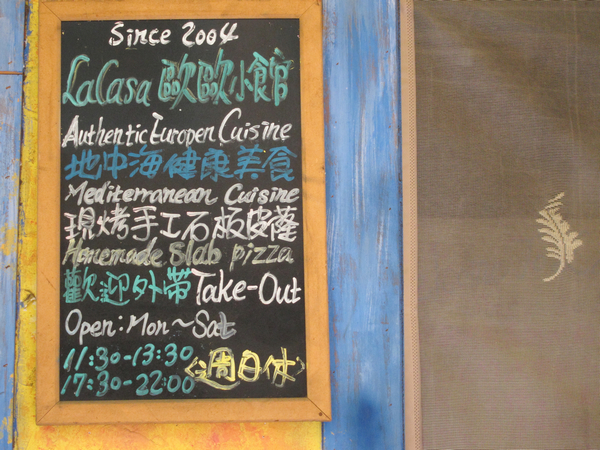 Since 2004
LaCasa 歐歐小館
Authentic Europen Cuisine
地中海健康美食
Mediterranean Cuisine
現烤手工石板披薩
Homemade Slab pizza
歡迎外帶 Take-Out
Open: Mon~Sat
11:30-13:30
17:30-22:00 <週日休>